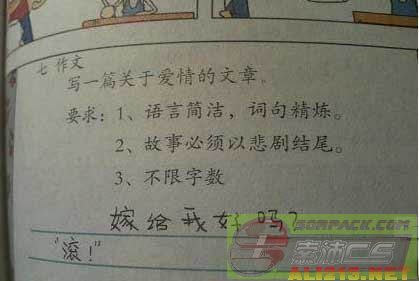 七 作文
写一篇关于爱情的文章。
要求：1、语言简洁，词句精炼。
2、故事必须以悲剧结尾。
3、不限字数
嫁给我好吗?
"滚!"
50RPACK.COM
索沛CS
ALI213.NET